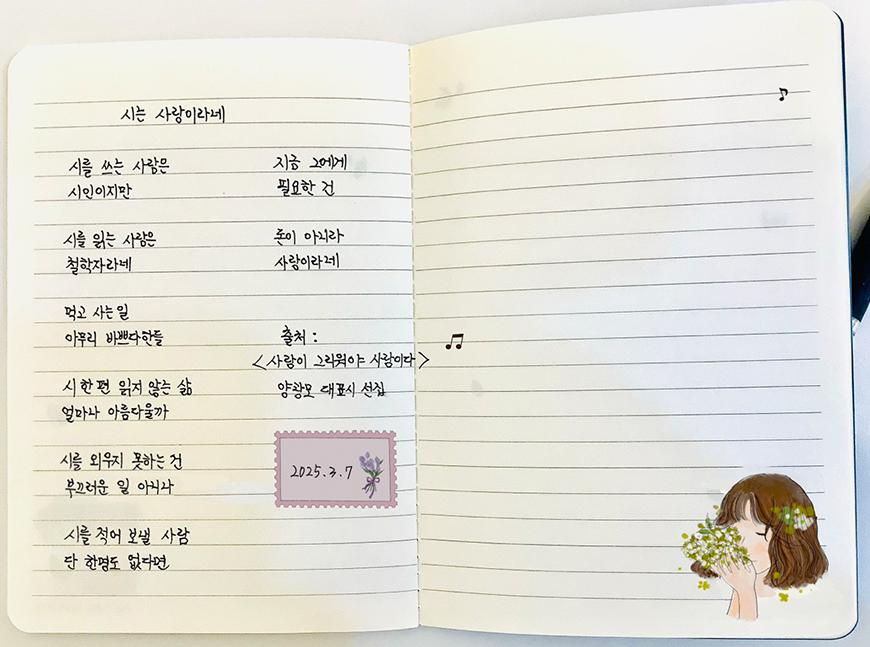 시는 사랑이라네
시를 쓰는 사람은
시인이지만
시를 읽는 사람은
철학자라네
먹고 사는 일
아무리 바쁘다한들
시 한 편 읽지 않는 삶
얼마나 아름다울까
시를 외우지 못하는 건
부끄러운 일 아니나
시를 적어 보낼 사람
단 한명도 없다면
지금 그에게
필요한 건
돈이 아니라
사랑이라네
출처 :
<사랑이 그리워야 사람이다>
양광모 대표시 선집
2025.3.7